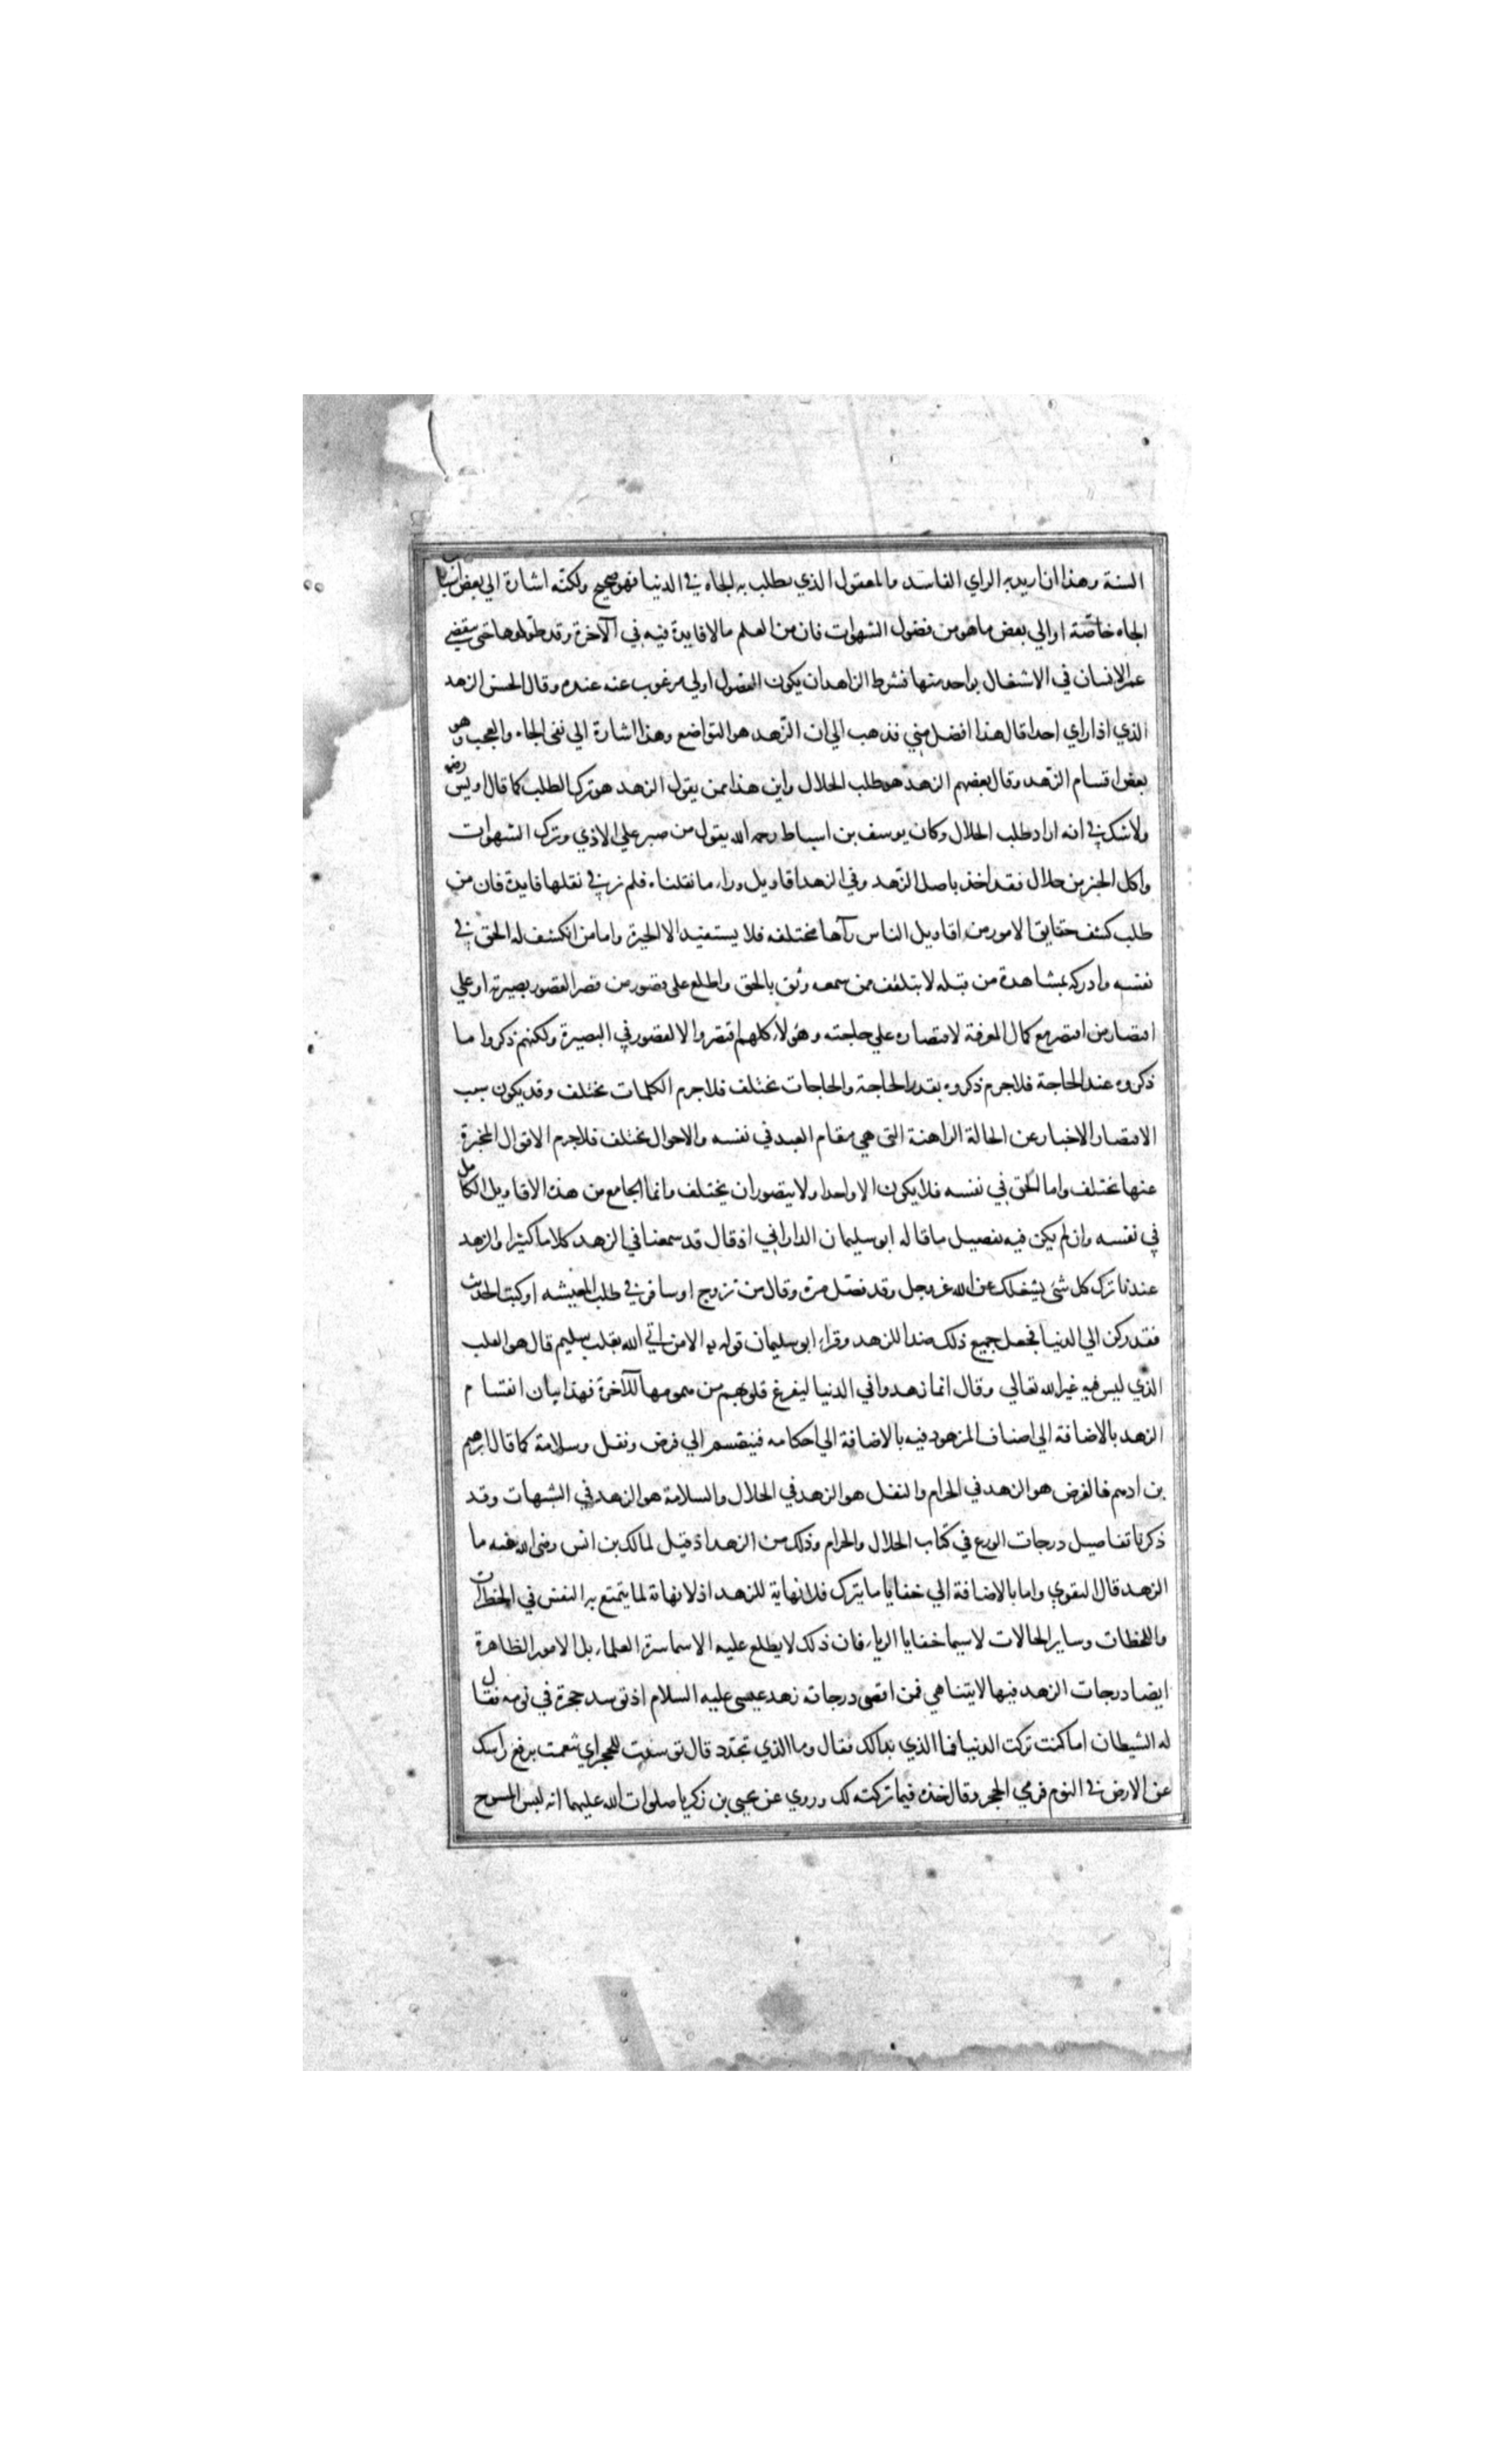 السنة وهذا ان اريد به الراي الفاسد والمعقول الذي يطلب به الجاه في الدنيا فهو صحيح ولكنه اشارة الي بعض اسباب
الجاه خاصة او الي بعض ما هو من فضول الشهوات فان من العلم ما لا فايدة فيه في الآخرة وقد طولوها حتى ينقضي
عمر الانسان في الاشتغال بواحد منها فشرط الزاهد ان يكون الفضول اولي مرغوب عنه عنده وقال الحسن الزهد
الذي اذا راي احدا قال هذا افضل مني فذهب الي ان الزهد هو التواضع وهذا اشارة الي نفي الجاه والعجب وهو
بعض اقسام الزهد وقال بعضهم الزهد هو طلب الحلال واين هذا ممن يقول الزهد هو ترك الطلب كما قال اويس رضه
ولا شك في انه اراد طلب الحلال وكان يوسف بن اسباط رحمه الله يقول من صبر علي الاذي وترك الشهوات
واكل الخبز من حلال فقد اخذ باصل الزهد وفي الزهد اقاويل وراء ما نقلناه فلم نر في نقلها فايدة فان من
طلب كشف حقايق الامور من اقاويل الناس رآها مختلفه فلا يستفيد الا الحيرة واما من انكشف له الحق في
نفسه وادركه بمشاهدة من قبله لا بتلقف ممن سمعه وثق بالحق واطلع علي قصور من قصر لقصور بصيرته او علي
اقتصار من اقتصر مع كمال المعرفة لاقتصاره علي حاجته وهؤلاء كلهم اقتصروا لا لقصور في البصيرة ولكنهم ذكروا ما
ذكروه عند الحاجة فلا جرم ذكروه بقدر الحاجة والحاجات تختلف فلا جرم الكلمات تختلف وقد يكون سبب
الاقتصار الاخبار عن الحالة الراهنة التي هي مقام العبد في نفسه والاحوال تختلف فلا جرم الاقوال المخبرة
عنها تختلف واما الحق في نفسه فلا يكون الا واحدا ولا يتصور ان يختلف وانما الجامع من هذه الاقاويل الكامل
في نفسه وان لم يكن فيه تفصيل ما قاله ابو سليمان الداراني اذ قال قد سمعنا في الزهد كلاما كثيرا والزهد
عندنا ترك كل شئ يشغلك عن الله عز وجل وقد فصل مرة وقال من تزوج او سافر في طلب المعيشه او كتب الحديث
فقد ركن الي الدنيا فجعل جميع ذلك ضدا للزهد وقراء ابو سليمان قوله الا من اتي الله بقلب سليم قال هو القلب
الذي ليس فيه غير الله تعالي وقال انما زهدوا في الدنيا ليفرغ قلوبهم من همومها للآخرة فهذا بيان انقسام
الزهد بالاضافة الي اصناف المزهود فيه بالاضافة الي احكامه فينقسم الي فرض ونفل وسلامة كما قال ابرهيم
بن ادهم فالفرض هو الزهد في الحرام والنفل هو الزهد في الحلال والسلامة هو الزهد في الشبهات وقد
ذكرنا تفاصيل درجات الورع في كتاب الحلال والحرام وذلك من الزهد اذ قيل لمالك بن انس رضي الله عنه ما
الزهد قال التقوي واما بالاضافة الي خفايا ما يترك فلا نهاية للزهد اذ لا نهاية لما يتمتع به النفس في الخطرات
واللحظات وساير الحالات لا سيما خفايا الرياء فان ذلك لا يطلع عليه الا سماسرة العلماء بل الامور الظاهرة
ايضا درجات الزهد فيها لا يتناهي فمن اقصي درجاته زهد عيسي عليه السلام اذ توسد حجرة في نومه فقال
له الشيطان اما كنت تركت الدنيا فما الذي بدا لك فقال وما الذي تجدد قال توسدت للحجر اي تنعمت برفع راسك
عن الارض في النوم فرمي الحجر وقال خذه فيما تركته لك وروي عن يحيي بن زكريا صلوات الله عليهما انه لبس المسوح